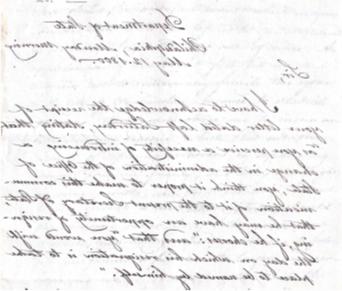 Department of State
Philadelphia, Monday Morning
May 12. 1800.
Sir,
I have to acknowledge the receipt of
your letter dated last Saturday, stating that
"as you perceive a necessity of introducing a
change in the administration of the office of
State, you think it proper to make this commu-
nication of it to the present Secretary of State,
that he may have an opportunity of resign-
ing, if he chooses:" and that "you would wish
the day on which his resignation is to take
place to be named by himself."